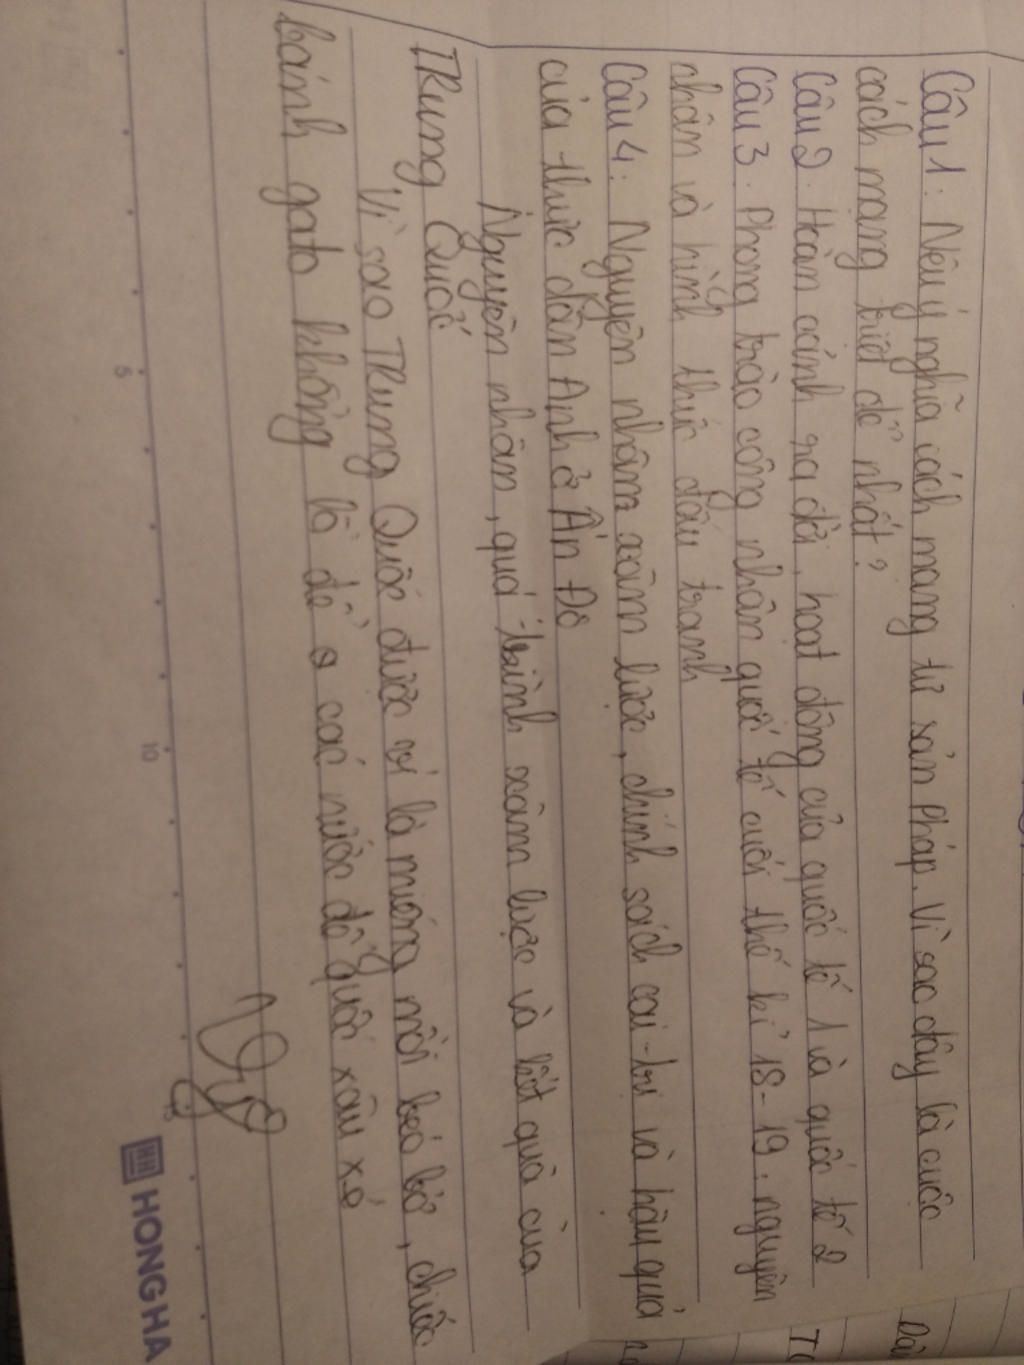 Câu 1: Nêu ý nghĩa cách mang tư sản Pháp. Vì sao đây là cuộc
cách mạng triệt để nhất?
Câu 2. Hoàn cảnh ra đời, hoạt động của quốc tế 1 và quốc tế 2
Câu 3. Phong trào công nhân quốc tế cuối thế kỉ 18-19. nguyên
nhân và hình thức đấu tranh
Câu 4: Nguyên nhân xâm lược, chính sách cai trị và hậu quả
của thực dân Anh ở Ấn Độ
Nguyên nhân, quá trình xâm lược và kết quả của
TRung Quốc
Vì sao TRung Quốc được ví là miếng mồi béo bở, chiếc
bánh gato khổng lồ để các nước đế quốc xâu xé
5
10
15
HONG HA